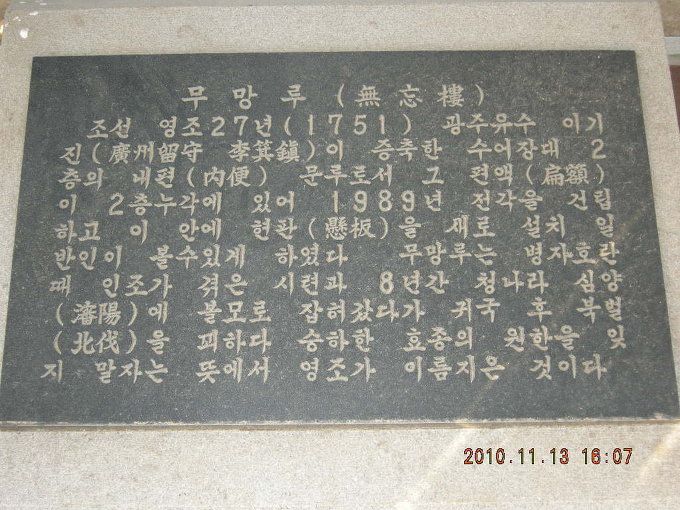 무망루(無忘樓)
조선 영조27년(1751) 광주유수 이기
진(廣州留守 李箕鎭)이 증축한 수어장대 2
층의 내편(內便) 문루로서 그 편액(扁額)
이 2층누각에 있어 1989년 전각을 건립
하고 이 안에 현판(懸板)을 새로 설치 일
반인이 볼수있게 하였다 무망루는 병자호란
때 인조가 겪은 시련과 8년간 청나라 심양
(瀋陽)에 볼모로 잡혀갔다가 귀국 후 북벌
(北伐)을 꾀하다 승하한 효종의 원한을 잊
지 말자는 뜻에서 영조가 이름지은 것이다
2010.11.13 16:07